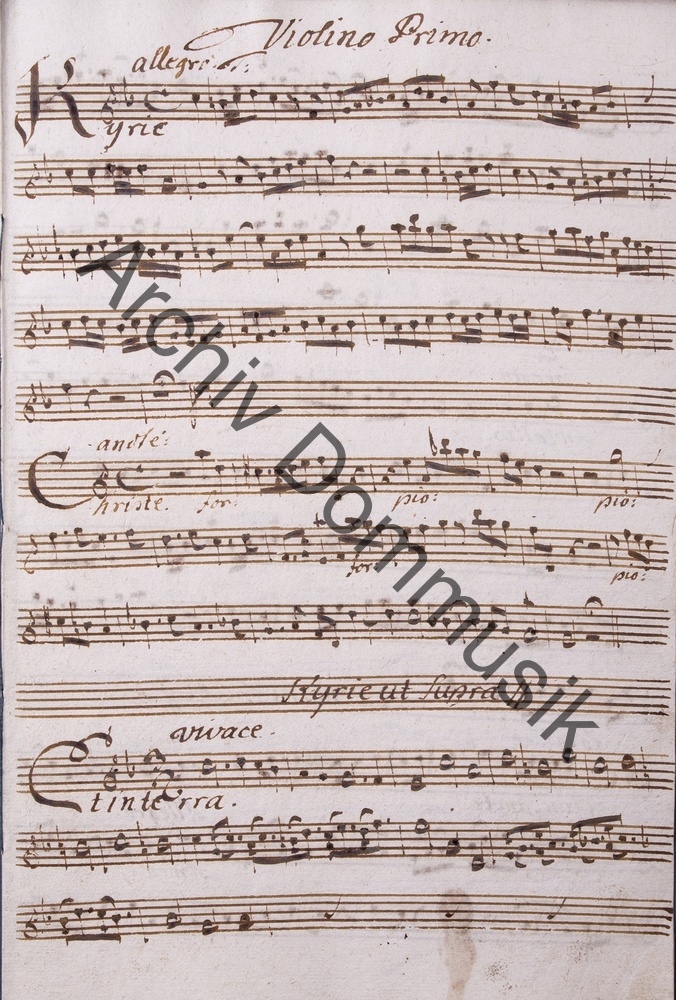 Violino Primo.
allegro
Kyrie
andte:
Christe. for. pio: pio:
for: pio:
Kyrie ut Supra
vivace.
Et in terra.
Archiv Dommusik